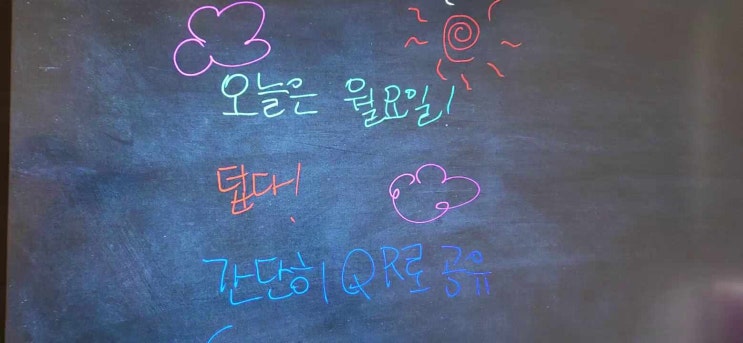 오늘은 월요일!
덥다!
간단히 QR로 공유